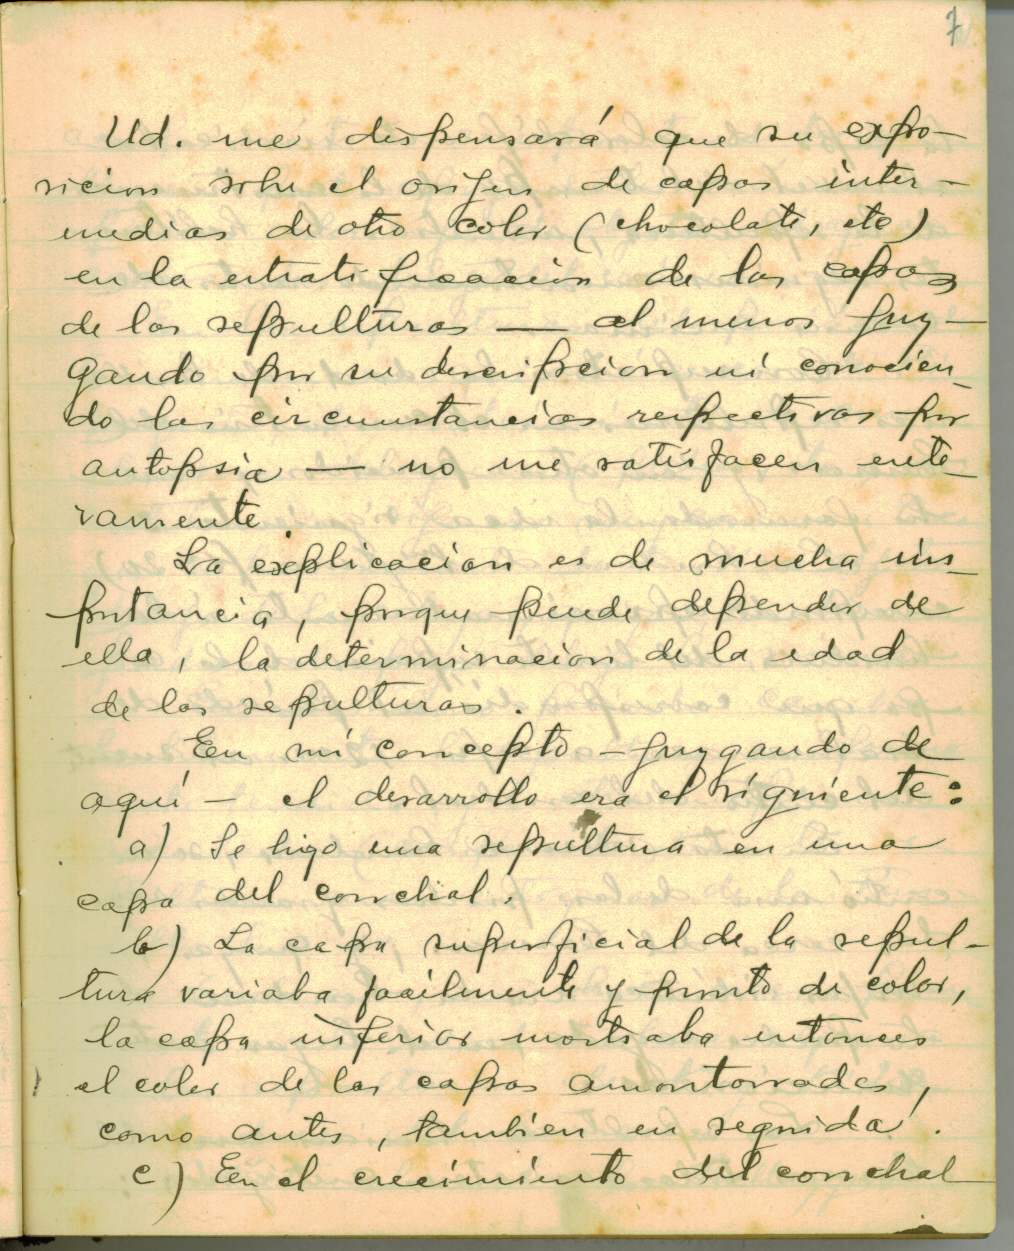 7
Ud. me dispensará que su expo-
sicion sobre el orijen de capas inter-
medias de otro color (chocolate, etc)
en la estratificacion de las capas
de las sepulturas — al menos juz-
gando por su descripcion ni conocien-
do las circunstancias respectivas por
autopsia — no me satisfacen ente-
ramente.
La explicacion es de mucha im-
portancia, porque puede depender de
ella, la determinacion de la edad
de las sepulturas.
En mi concepto — juzgando de
aquí — el desarrollo era el siguiente:
a) Se hizo una sepultura en una
capa del conchal.
b) La capa superficial de la sepul-
tura variaba facilmente y pronto de color,
la capa inferior mostraba entonces
el color de las capas amontonadas,
como antes, tambien en seguida.
c) En el crecimiento del conchal